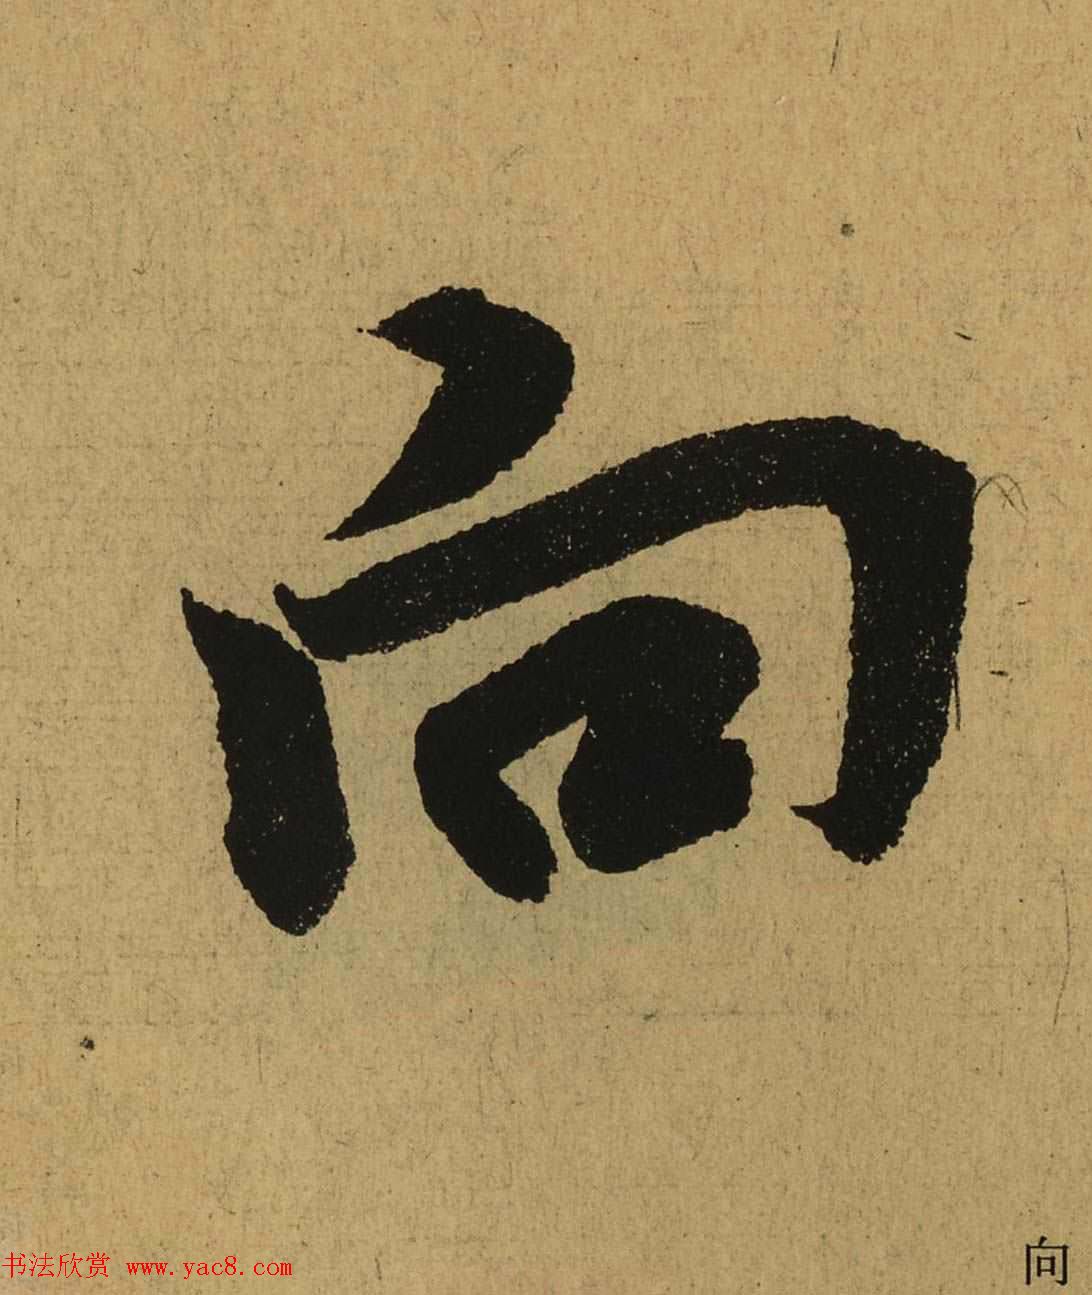 向
书法欣赏 www.yac8.com
向